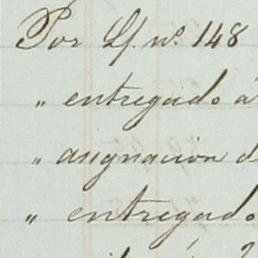 Por Lf. nº. 148
" entregado á
" asignacion d
" entregado